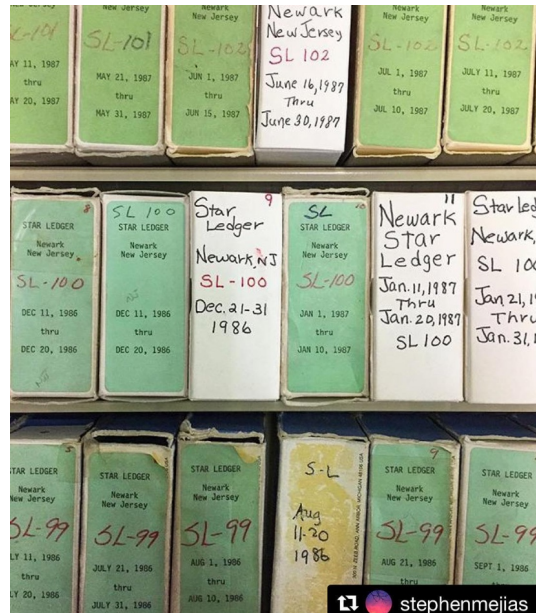 SL-101
AY 11, 1987
thru
AY 20, 1987
SL-101
MAY 21, 1987
thru
MAY 31, 1987
SL-102
JUN 1, 1987
thru
JUN 15, 1987
Newark
New Jersey
SL 102
June 16, 1987
Thru
June 30, 1987
SL-102
JUL 1, 1987
thru
JUL 10, 1987
SL-102
JULY 11, 1987
thru
JULY 20, 1987
8
STAR LEDGER
Newark
New Jersey
SL-100
DEC 11, 1986
thru
DEC 20, 1986
NJ
SL 100
STAR LEDGER
Newark
New Jersey
NJ
DEC 11, 1986
thru
DEC 20, 1986
9
Star
Ledger
Newark, NJ
SL-100
Dec. 21-31
1986
SL
10
STAR LEDGER
Newark
New Jersey
SL-100
JAN 1, 1987
thru
JAN 10, 1987
11
Newark
Star
Ledger
Jan. 11, 1987
Thru
Jan. 20, 1987
SL 100
Star Led
Newark,
SL 100
Jan 21, 1
Thru
Jan. 31, 1
5
STAR LEDGER
Newark
New Jersey
SL-99
LY 11, 1986
thru
LY 20, 1986
STAR LEDGER
Newark
New Jersey
SL-99
JULY 21, 1986
thru
JULY 31, 1986
STAR LEDGER
Newark
New Jersey
SL-99
AUG 1, 1986
thru
AUG 10, 1986
S-L
Aug
11-20
1986
ROAD, ANN ARBOR, MICHIGAN 48106 USA
9
STAR LEDGER
Newark
New Jersey
SL-99
AUG 21, 1986
thru
STAR LEDGER
Newark
New Jersey
SL-99
SEPT 1, 1986
thru
stephenmejias